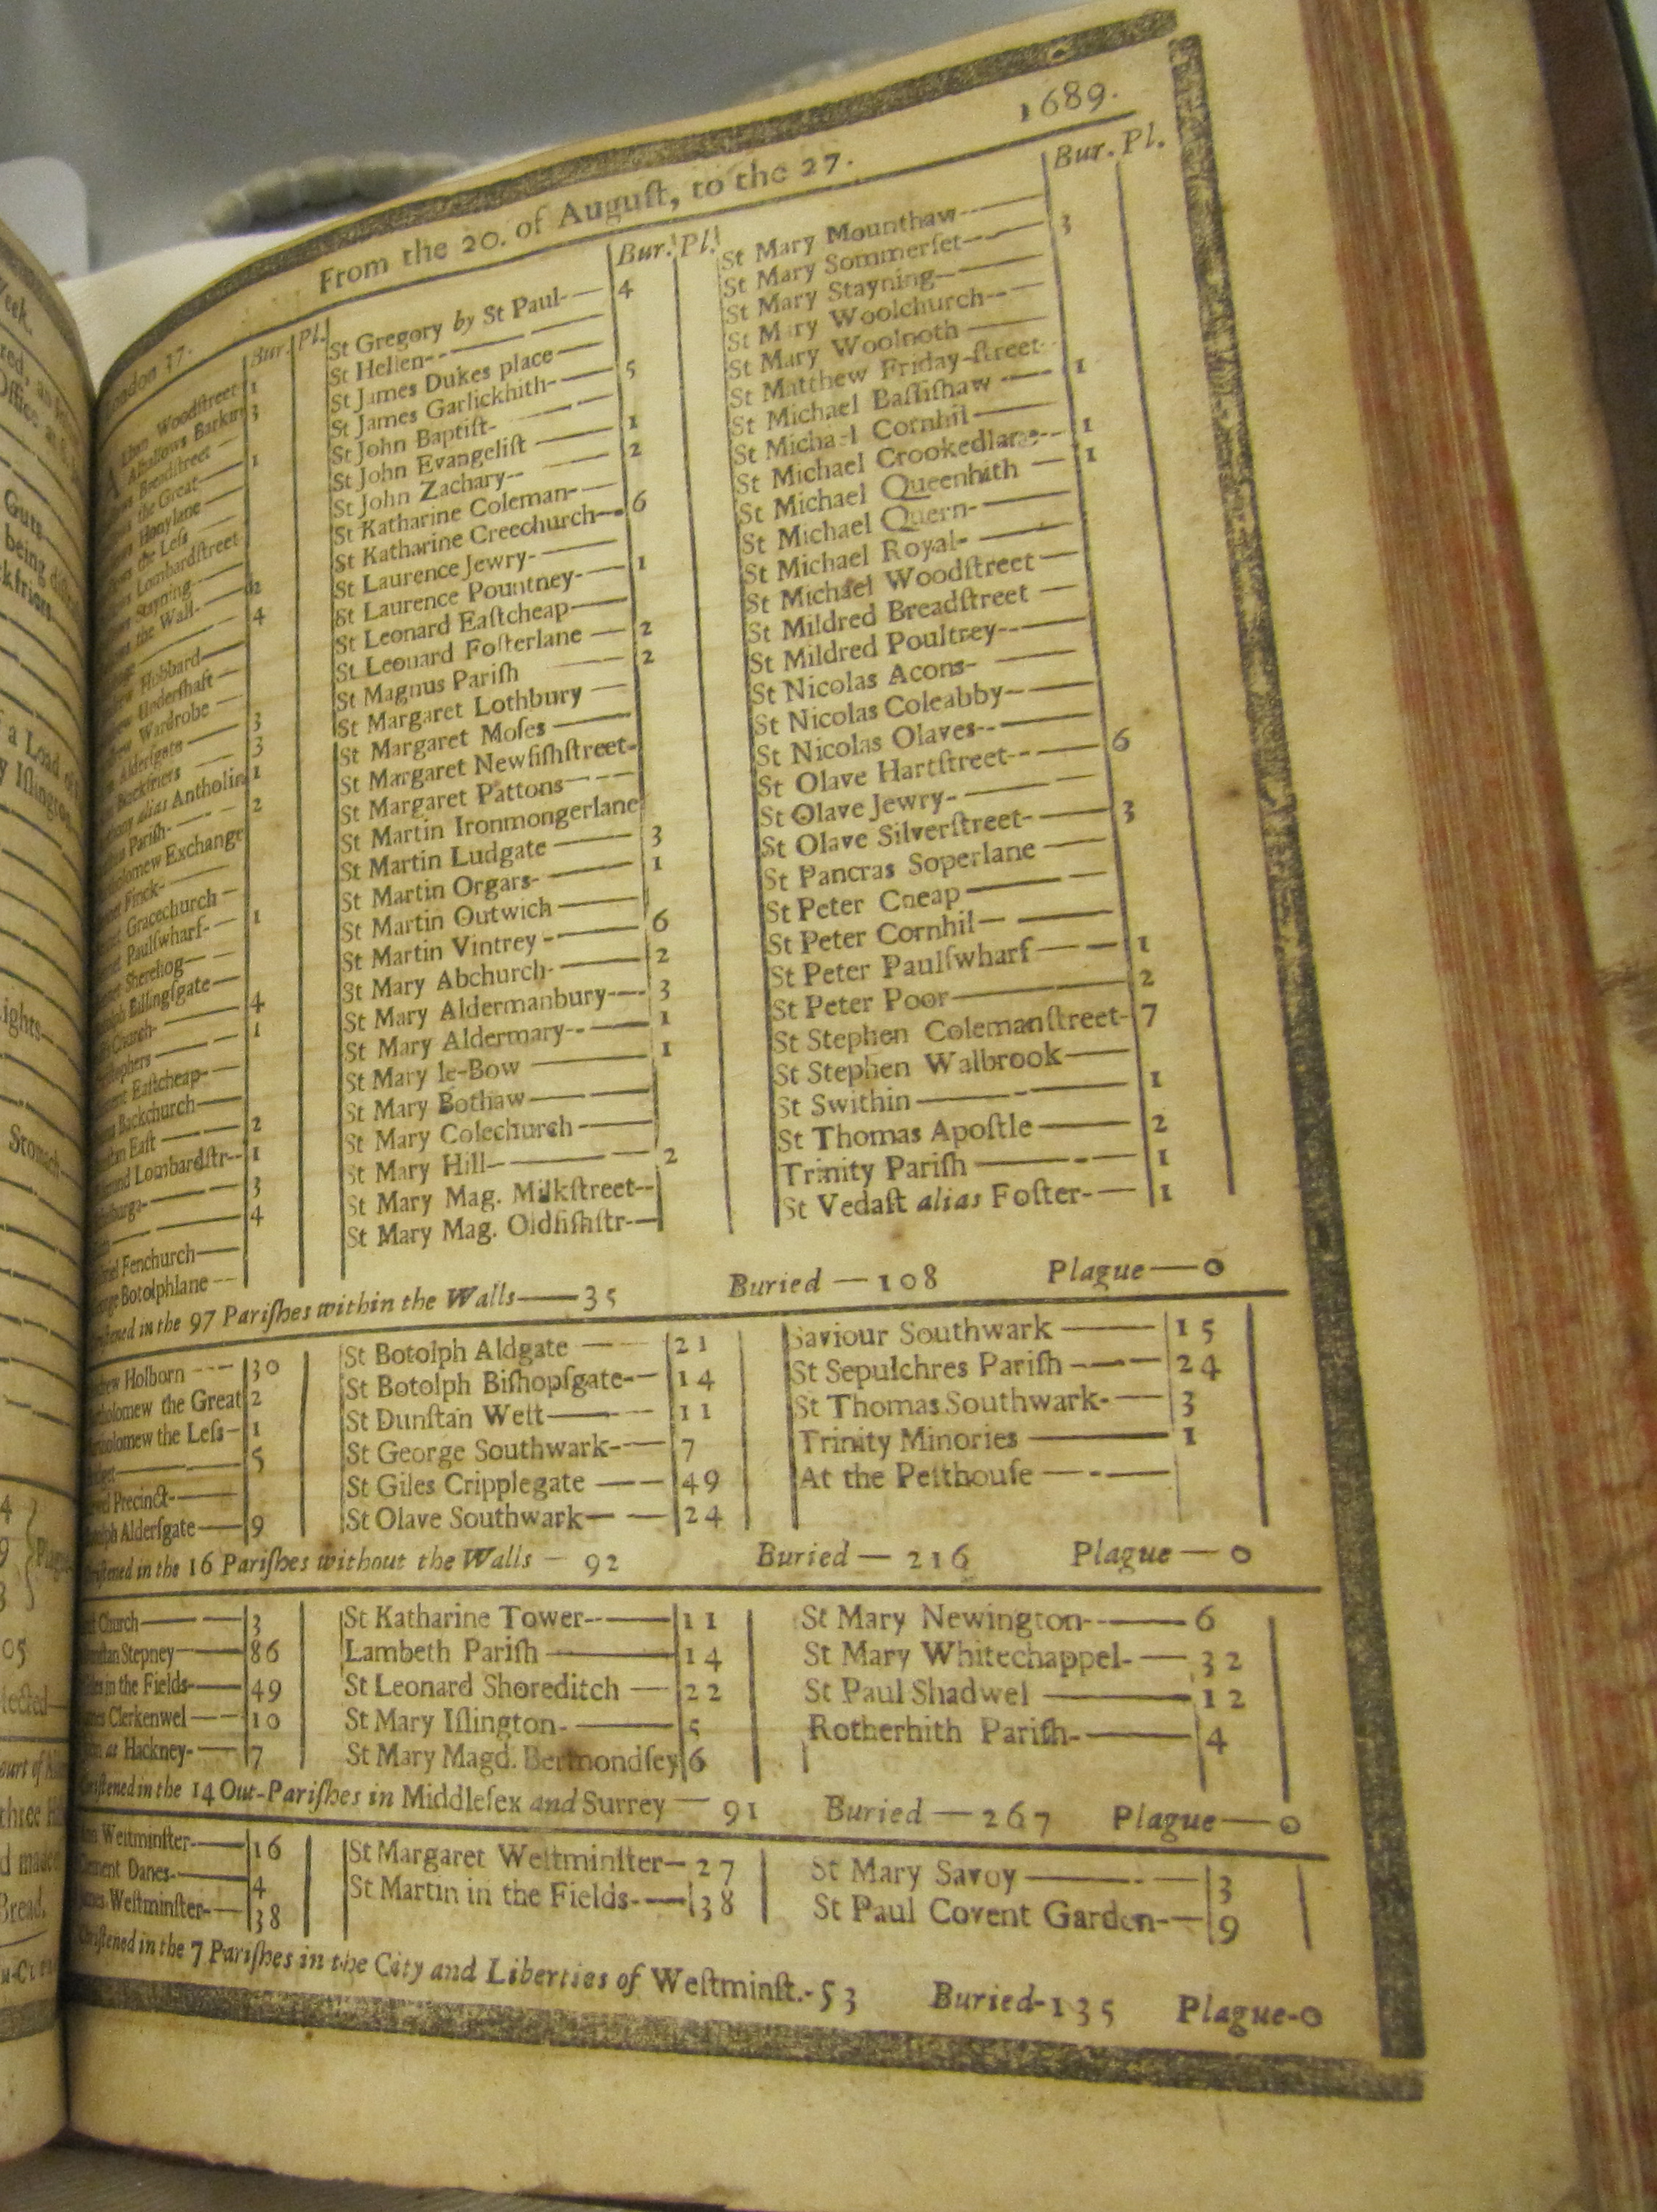 1689.
From the 20. of Auguſt, to the 27.
London 37. Bur. Pl.
Woodſtreet 1
Alhallows Barkin 3
Breadſtreet
the Great 1
Honylane
the Leſs
Lombardſtreet
Stayning
the Wall 2
4
Hubbard
Underſhaft
Wardrobe
Alderſgate 3
Blackfriers 3
alias Antholin 1
Pariſh 2
Exchange
Finck
Gracechurch
Paulſwharf 1
Sherehog
Billingſgate
Church 4
1
Eaſtcheap
Backchurch
Eaſt 2
Lombardſtr 1
3
4
Fenchurch
Botolphlane
Bur. Pl.
St Gregory by St Paul 4
St Hellen
St James Dukes place
St James Garlickhith 5
St John Baptiſt
St John Evangeliſt 1
St John Zachary 2
St Katharine Coleman
St Katharine Creechurch 6
St Laurence Jewry
St Laurence Pountney 1
St Leonard Eaſtcheap
St Leonard Foſterlane 2
St Magnus Pariſh 2
St Margaret Lothbury
St Margaret Moſes
St Margaret Newfiſhſtreet
St Margaret Pattons
St Martin Ironmongerlane
St Martin Ludgate 3
St Martin Orgars 1
St Martin Outwich
St Martin Vintrey 6
St Mary Abchurch 2
St Mary Aldermanbury 3
St Mary Aldermary 1
St Mary le-Bow 1
St Mary Bothaw
St Mary Colechurch
St Mary Hill 2
St Mary Mag. Milkſtreet
St Mary Mag. Oldfiſhſtr
Bur. Pl.
St Mary Mounthaw
St Mary Sommerſet 3
St Mary Stayning
St Mary Woolchurch
St Mary Woolnoth
St Matthew Friday-ſtreet
St Michael Baſſiſhaw 1
St Michael Cornhil
St Michael Crookedlane 1
St Michael Queenhith 1
St Michael Quern
St Michael Royal
St Michael Woodſtreet
St Mildred Breadſtreet
St Mildred Poultrey
St Nicolas Acons
St Nicolas Coleabby
St Nicolas Olaves
St Olave Hartſtreet 6
St Olave Jewry
St Olave Silverſtreet 3
St Pancras Soperlane
St Peter Cheap
St Peter Cornhil
St Peter Paulſwharf 1
St Peter Poor 2
St Stephen Colemanſtreet 7
St Stephen Walbrook
St Swithin 1
St Thomas Apoſtle 2
Trinity Pariſh 1
St Vedaſt alias Foſter 1
in the 97 Pariſhes within the Walls 35 Buried 108 Plague 0
Holborn 30
the Great 2
the Leſs 1
5
Precinct
Alderſgate 9
St Botolph Aldgate 21
St Botolph Biſhopſgate 14
St Dunſtan Weſt 11
St George Southwark 7
St Giles Cripplegate 49
St Olave Southwark 24
Saviour Southwark 15
St Sepulchres Pariſh 24
St Thomas Southwark 3
Trinity Minories 1
At the Peſthouſe
in the 16 Pariſhes without the Walls 92 Buried 216 Plague 0
Church 3
Stepney 86
in the Fields 49
Clerkenwel 10
at Hackney 7
St Katharine Tower 11
Lambeth Pariſh 14
St Leonard Shoreditch 22
St Mary Iſlington 5
St Mary Magd. Bermondſey 6
St Mary Newington 6
St Mary Whitechappel 32
St Paul Shadwel 12
Rotherhith Pariſh 4
in the 14 Out-Pariſhes in Middleſex and Surrey 91 Buried 267 Plague 0
Weſtminſter 16
Danes 4
Weſtminſter 38
St Margaret Weſtminſter 27
St Martin in the Fields 38
St Mary Savoy 3
St Paul Covent Garden 9
in the 7 Pariſhes in the City and Liberties of Weſtminſt. 53 Buried 135 Plague 0